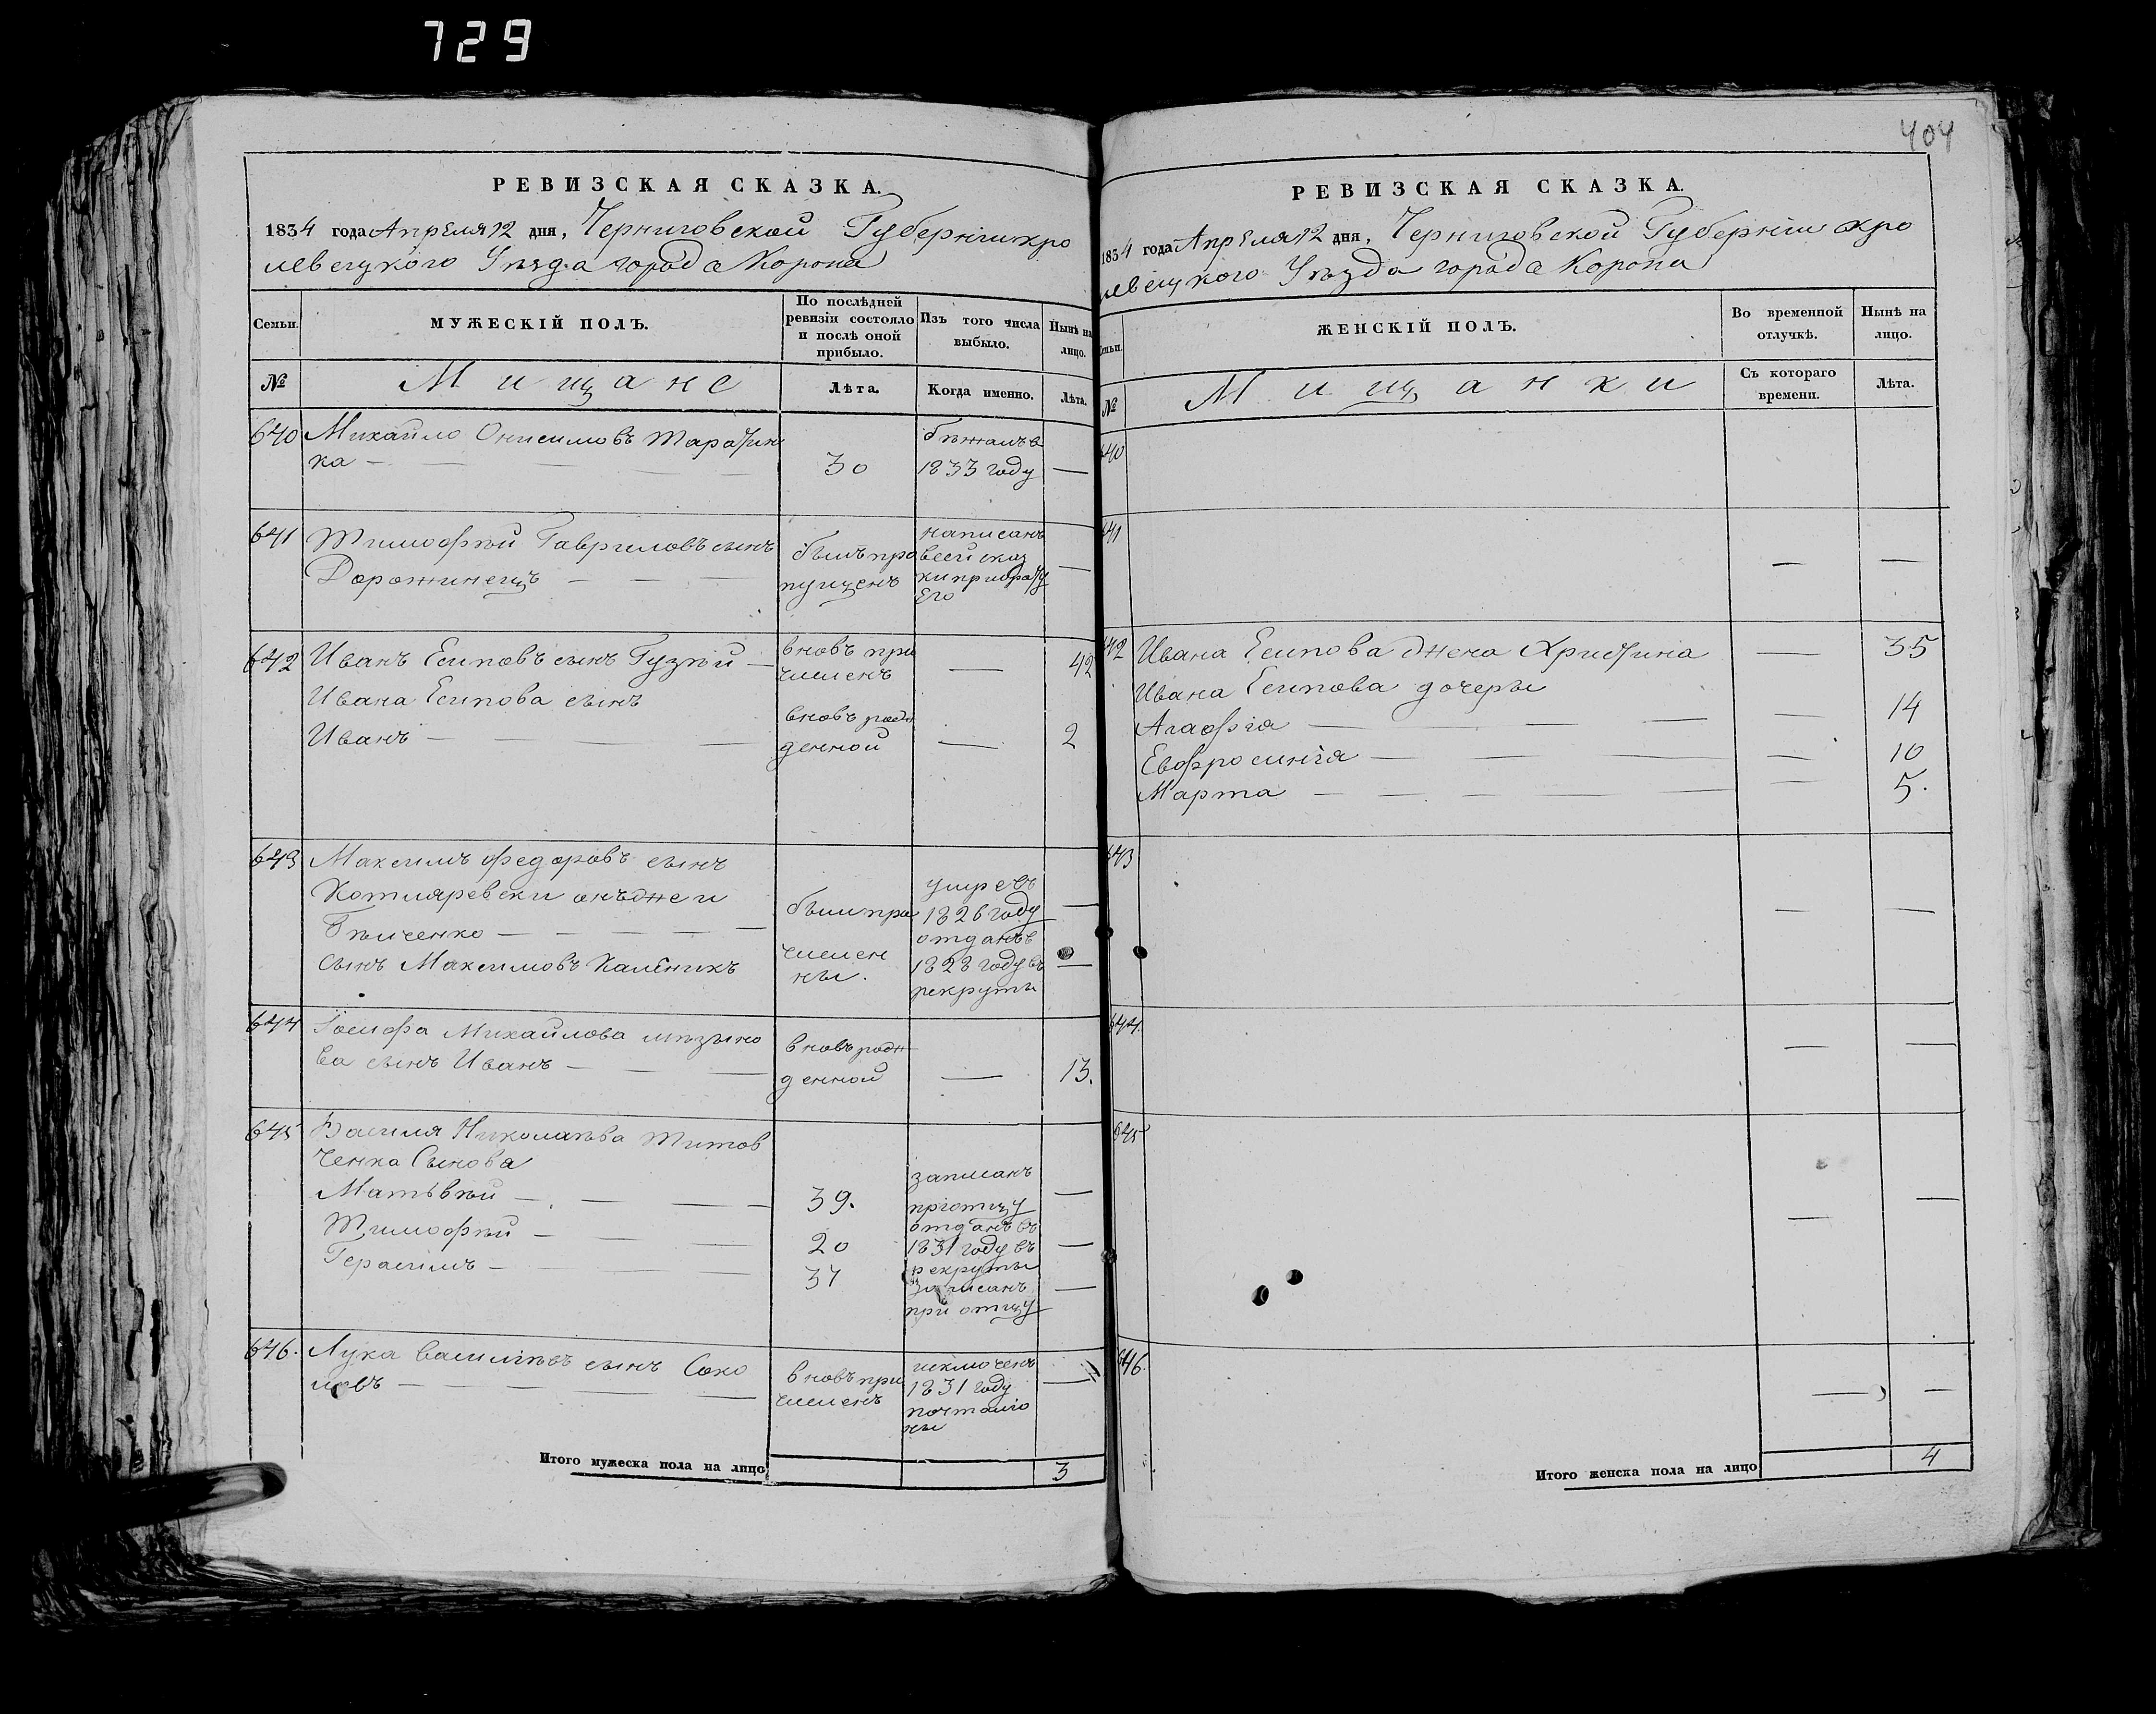 729
404
РЕВИЗСКАЯ СКАЗКА.
1834 года Апреля 12 дня, Черниговской Губерніи кро
левецкого Уѣзда города Коропа
Семьи.
МУЖЕСКІЙ ПОЛЪ.
По послѣдней
ревизіи состояло
и послѣ оной
прибыло.
Изъ того числа
выбыло.
Нынѣ на
лицо.
№
Мищане
Лѣта.
Когда именно.
Лѣта.
640 Михайло Онисимовъ
ка 30
бѣжалъ в
1833 году
641 Тимофѣй Гавриловъ сынъ
Дорожинецъ
былъ про
пущенъ
написанъ
всей сказ
ки при брату
его
642 Иванъ Есиповъ сынъ Гузѣй
вновь при
численъ
42
Ивана Есипова сынъ
Иванъ
вновь рож
денной
2
643 Максимъ Федоровъ сынъ
Котляревски онъ же и
Бѣличенко
сынъ Максимовъ Калѣникъ
были при
числен
ны.
умре въ
1826 году
отданъ в
1828 году въ
рекруты
644 Іосифа Михайлова
ва сынъ Иванъ
вновь рож
денной
13.
645 Василя Николаѣва Титов
ченка Сынова
Матьвѣй 39.
записанъ
при отцу
Тимофѣй 20
отданъ въ
1831 году въ
рекруты
Герасимъ 37
записанъ
при отцу
646. Лука Васильѣвъ сынъ Соко
ловъ
вновь при
численъ
исключенъ
1831 году
почталіо
ны
Итого мужеска пола на лицо 3
РЕВИЗСКАЯ СКАЗКА.
1834 года Апреля 12 дня, Черниговской Губерніи кро
левецкого Уѣзда города Коропа
Семьи.
ЖЕНСКІЙ ПОЛЪ.
Во временной
отлучкѣ.
Нынѣ на
лицо.
№
Мищанки
Съ котораго
времени.
Лѣта.
640
641
642 Ивана Есипова жена Христина 35
Ивана Есипова дочеры
Агафія 14
Евфросинія 10
Марта 5.
643
644.
645
646.
Итого женска пола на лицо 4